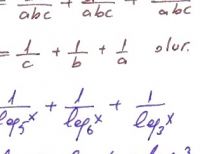 abc + abc + abc
= 1/c + 1/b + 1/a olur.
1/log₅x + 1/log₆x + 1/log₃x